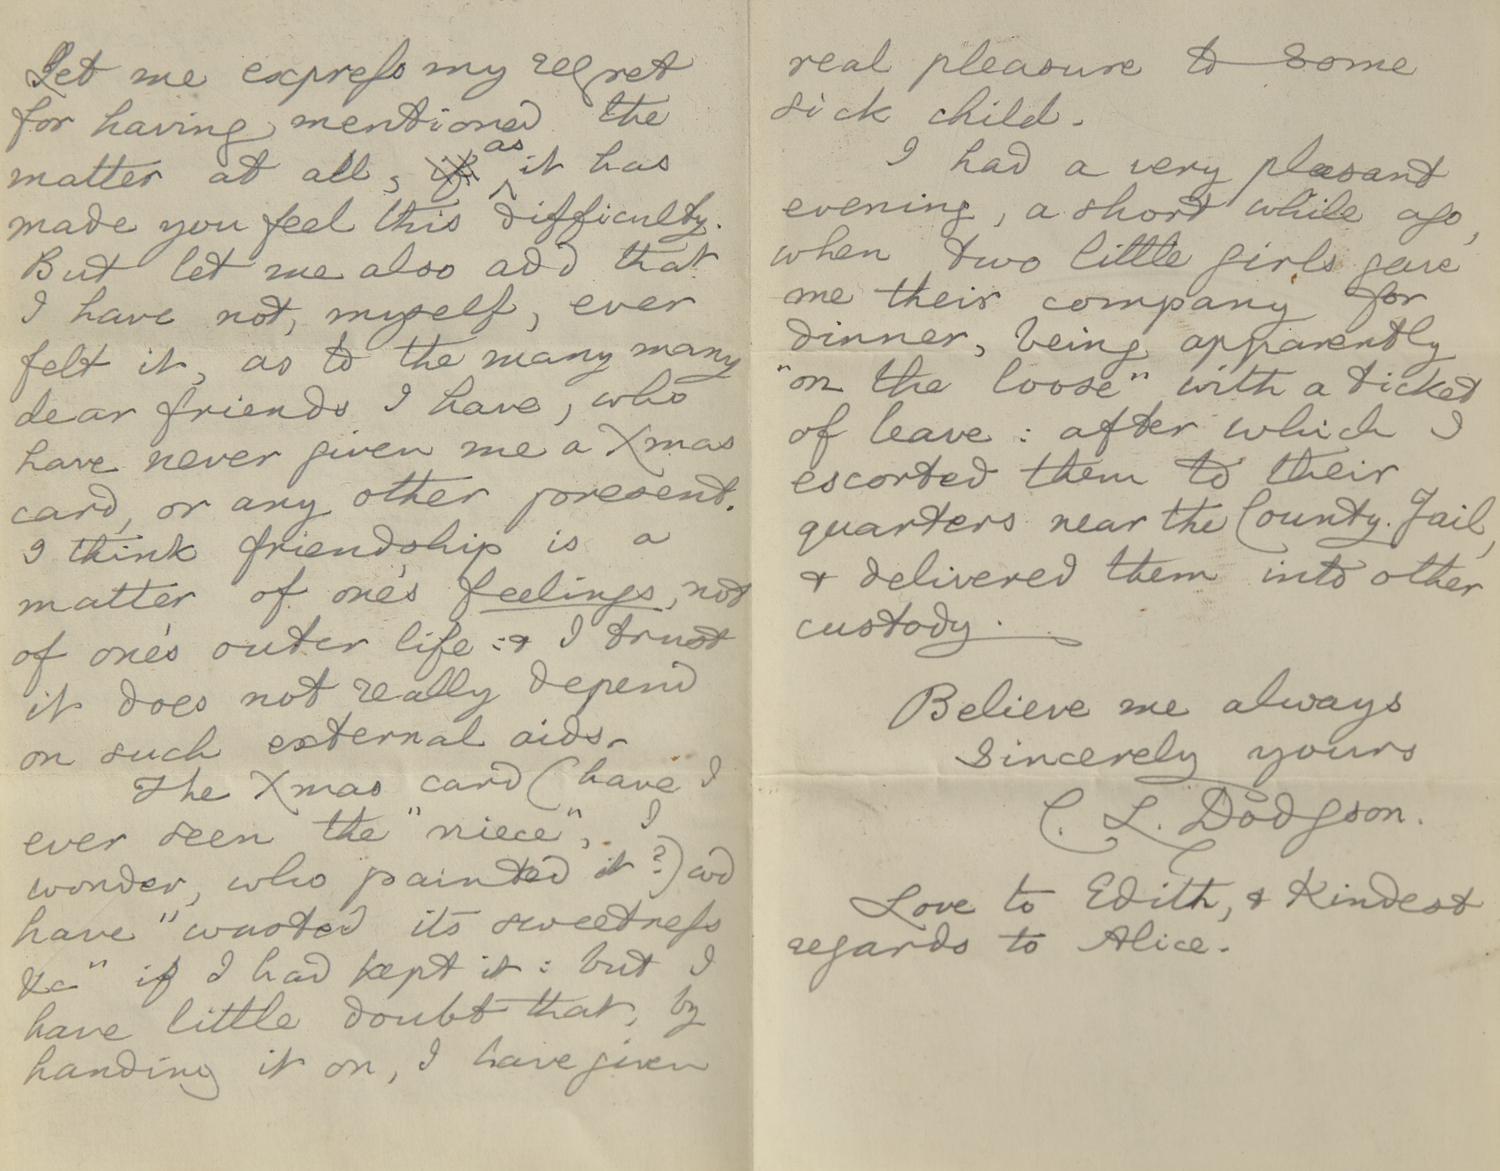 Let me express my regret
for having mentioned the
matter at all, if as it has
made you feel this difficulty.
But let me also add that
I have not, myself, ever
felt it, as to the many many
dear friends I have, who
have never given me a Xmas
card, or any other present.
I think friendship is a
matter of one's feelings, not
of one's outer life: & I trust
it does not really depend
on such external aids.
The Xmas card (have I
ever seen the "niece", I
wonder, who painted it?) wd
have "wasted its sweetness
&c" if I had kept it: but I
have little doubt that, by
handing it on, I have given
real pleasure to some
sick child.
I had a very pleasant
evening, a short while ago,
when two little girls gave
me their company for
dinner, being apparently
"on the loose" with a ticket
of leave: after which I
escorted them to their
quarters near the County Jail,
& delivered them into other
custody.
Believe me always
sincerely yours
C. L. Dodgson.
Love to Edith, & kindest
regards to Alice.